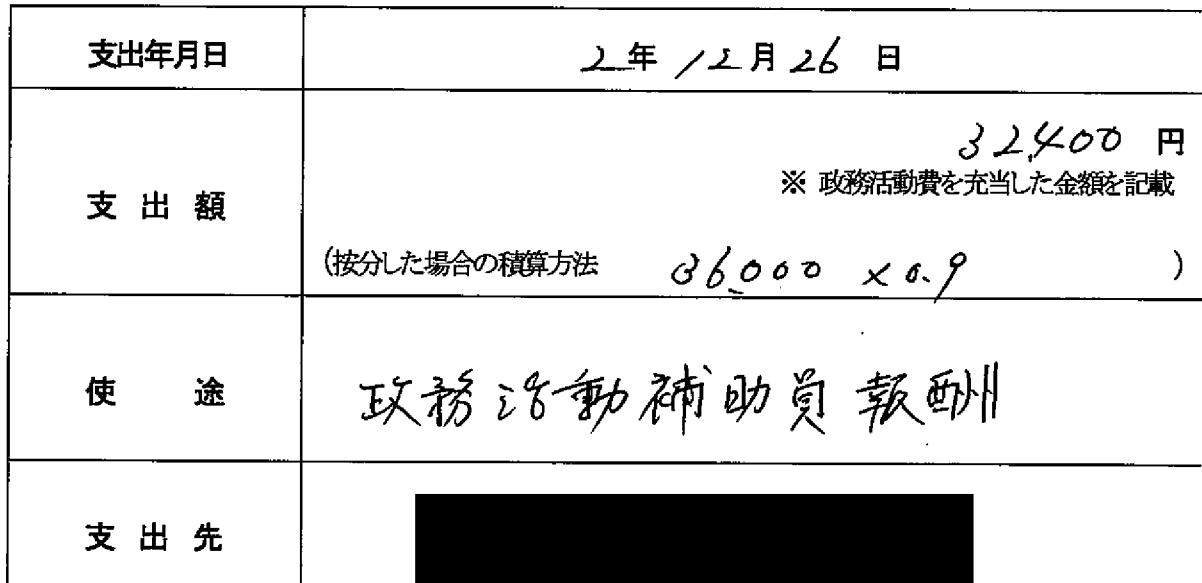 支出年月日 2年 12月 26日
32,400 円
※ 政務活動費を充当した金額を記載
支出額
(按分した場合の積算方法 36,000 × 0.9 )
使途 政務活動補助員報酬
支出先